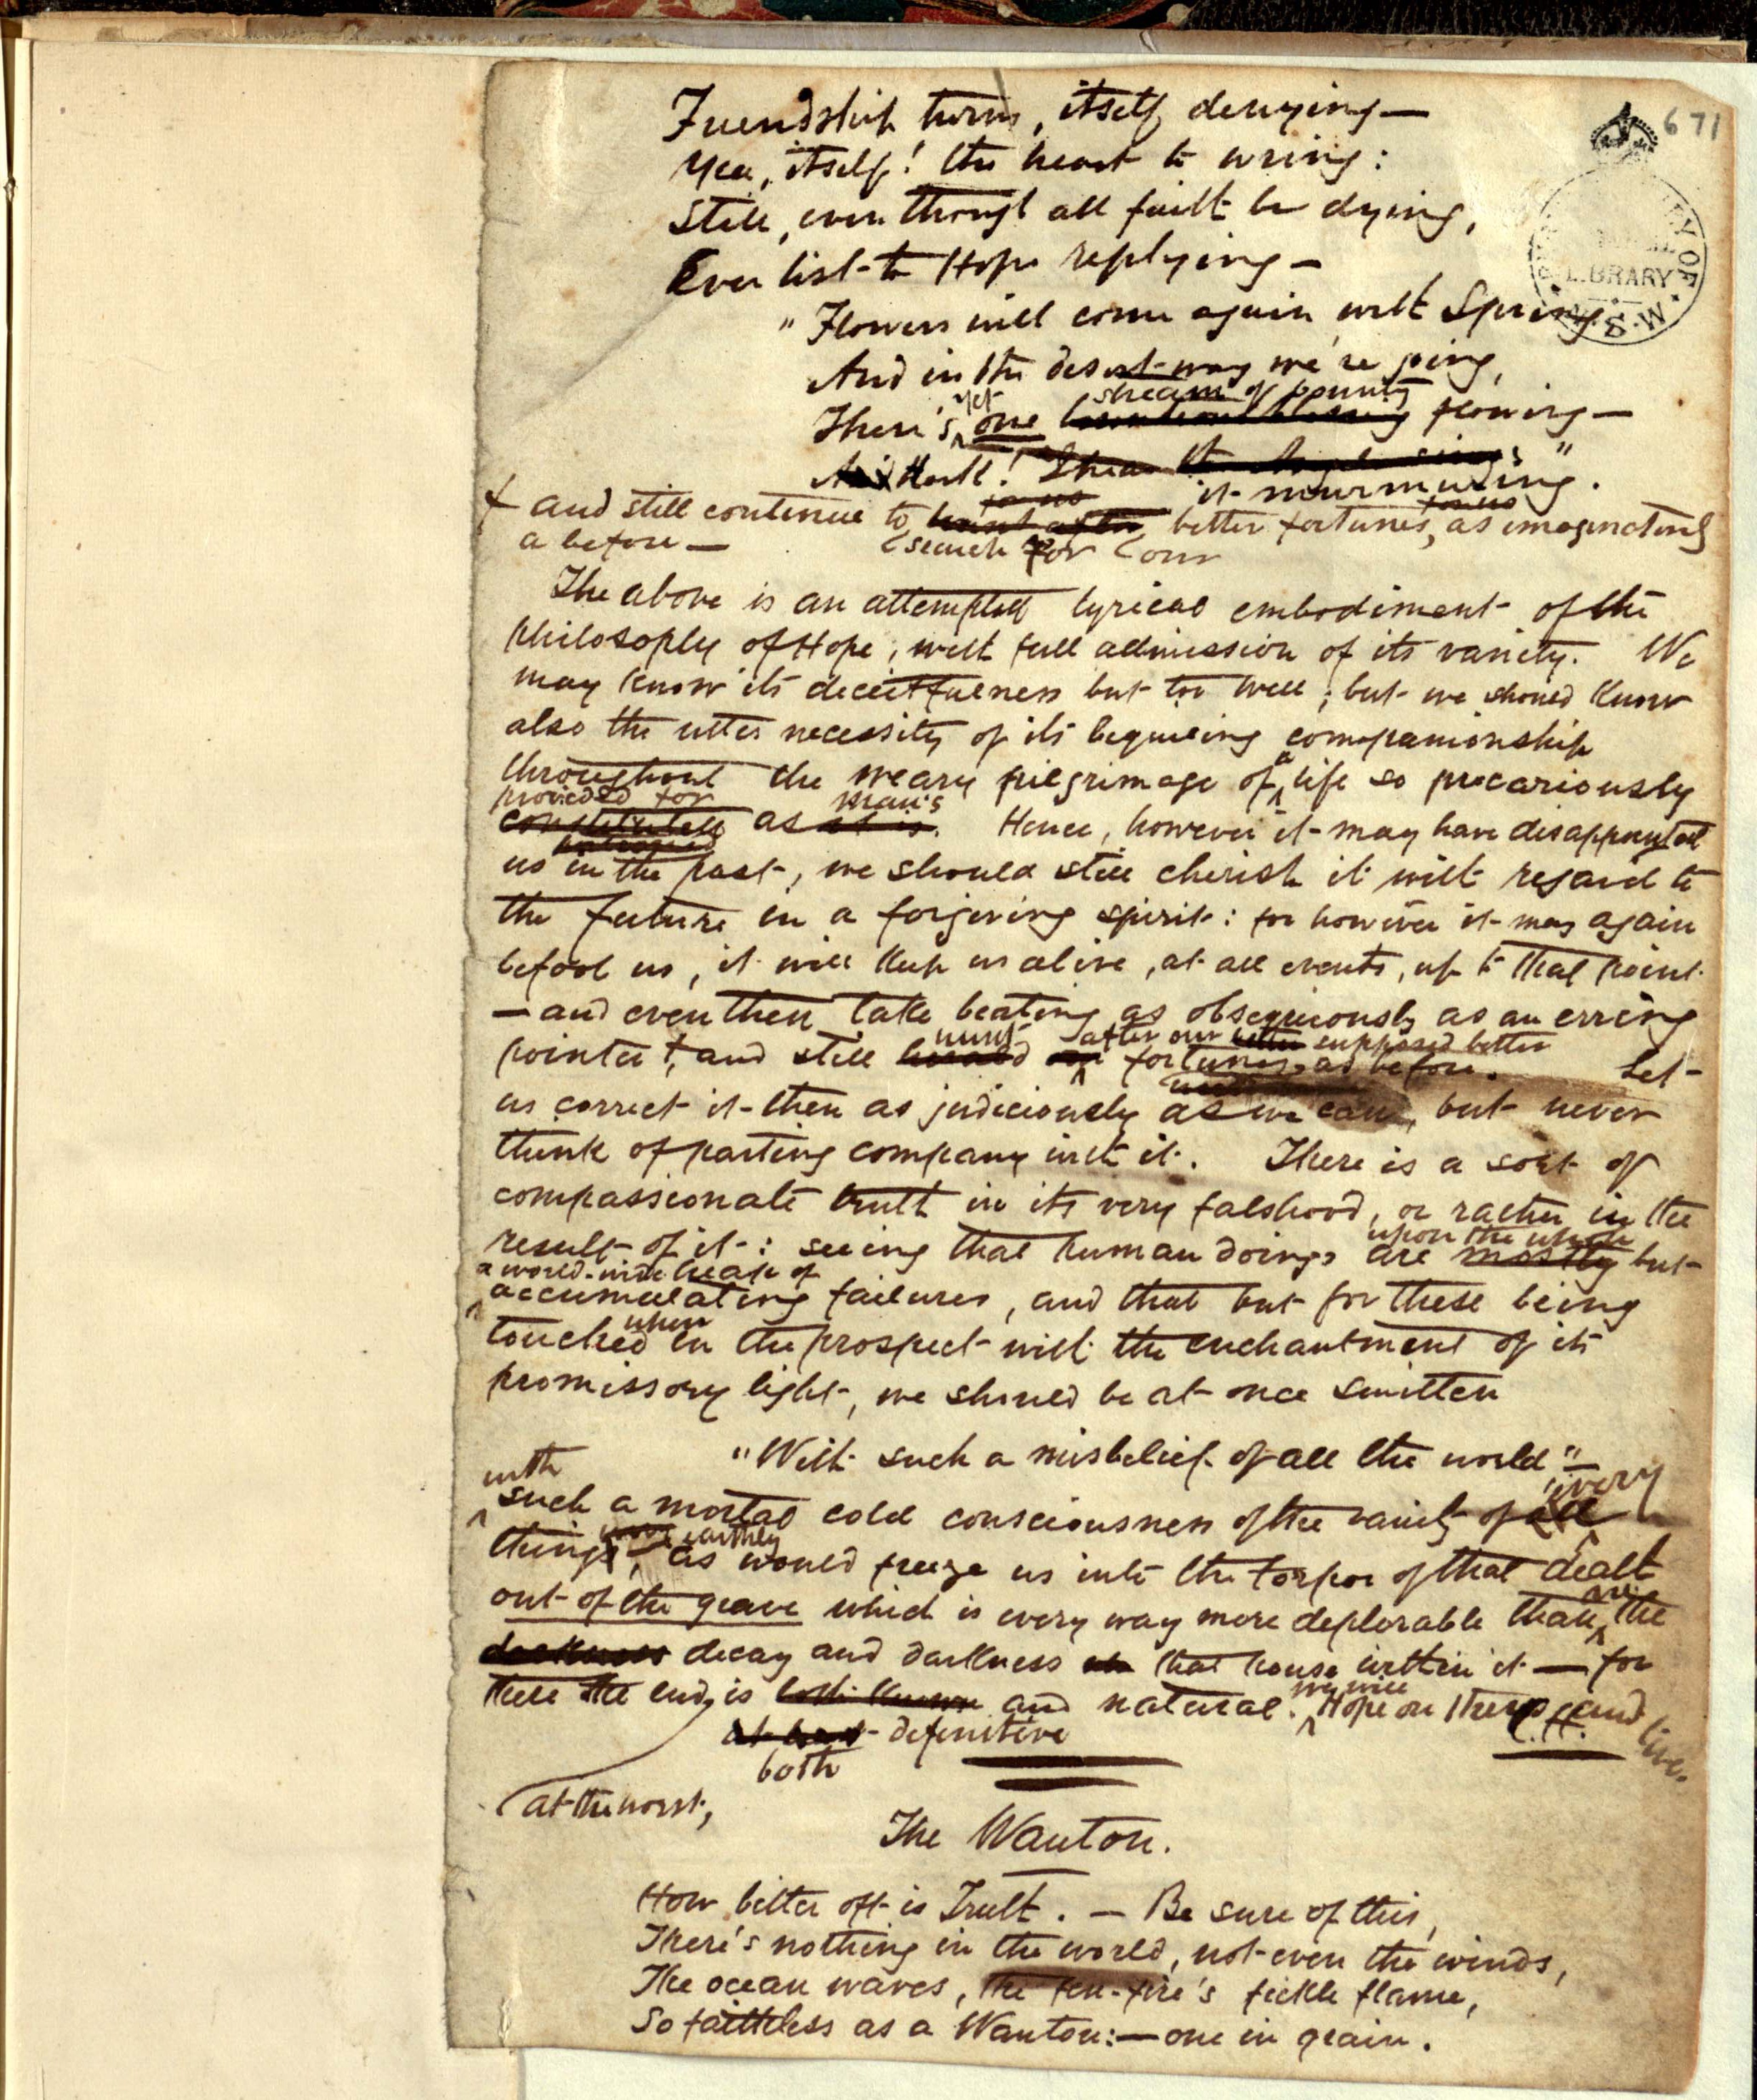 671
LIBRARY
Friendship turns, itself denying—
Yea, itself! the heart to wring:
Still, even though all faith be dying,
Ever list to Hope replying—
"Flowers will come again with Spring
And in the desert way we're going,
stream of bounty
There's yet one flowing—
And Hark! I hear the Angel sing"
it murmuring.
for us for us
+ and still continue to hunt after better fortunes, as imagincting
a before— search for our
The above is an attempted lyrical embodiment of the
philosophy of Hope, with full admission of its vanity. We
may know its deceitfulness but too well; but we should know
also the utter necessity of its beguiling companionship
throughout the weary pilgrimage of a life so precariously
provided for man's
constituted as it is. Hence, however it may have disappointed
us in the past, we should still cherish it with regard to
the future in a forgiving spirit: for however it may again
befool us, it will keep us alive, at all events, up to that point
—and even then take beating as obsequiously as an erring
hunt after our better supposed better
pointer +, and still fortunes as before. Let
us correct it then as judiciously as we can, but never
think of parting company with it. There is a sort of
compassionate truth in its very falshood, or rather in the
upon the whole
result of it: seeing that human doings are mostly but
a world-wide heap of
accumulating failures, and that but for these being
when
touched in the prospect with the enchantment of its
promissory light, we should be at once smitten
"With such a misbelief of all the world"—
with every
such a mortal cold consciousness of the vanity of all
earthly
things, as would freeze us into the torpor of that death
out of the grave which is every way more deplorable than are the
darkness decay and darkness that house within it— for
we will
there the end, is both known and natural. Hope on then and live.
C.H.
at least definitive
both
at the worst,
The Wanton.
How better off is Truth. — Be sure of this,
There's nothing in the world, not even the winds,
The ocean waves, the fen-fire's fickle flame,
So faithless as a Wanton:—one in grain.